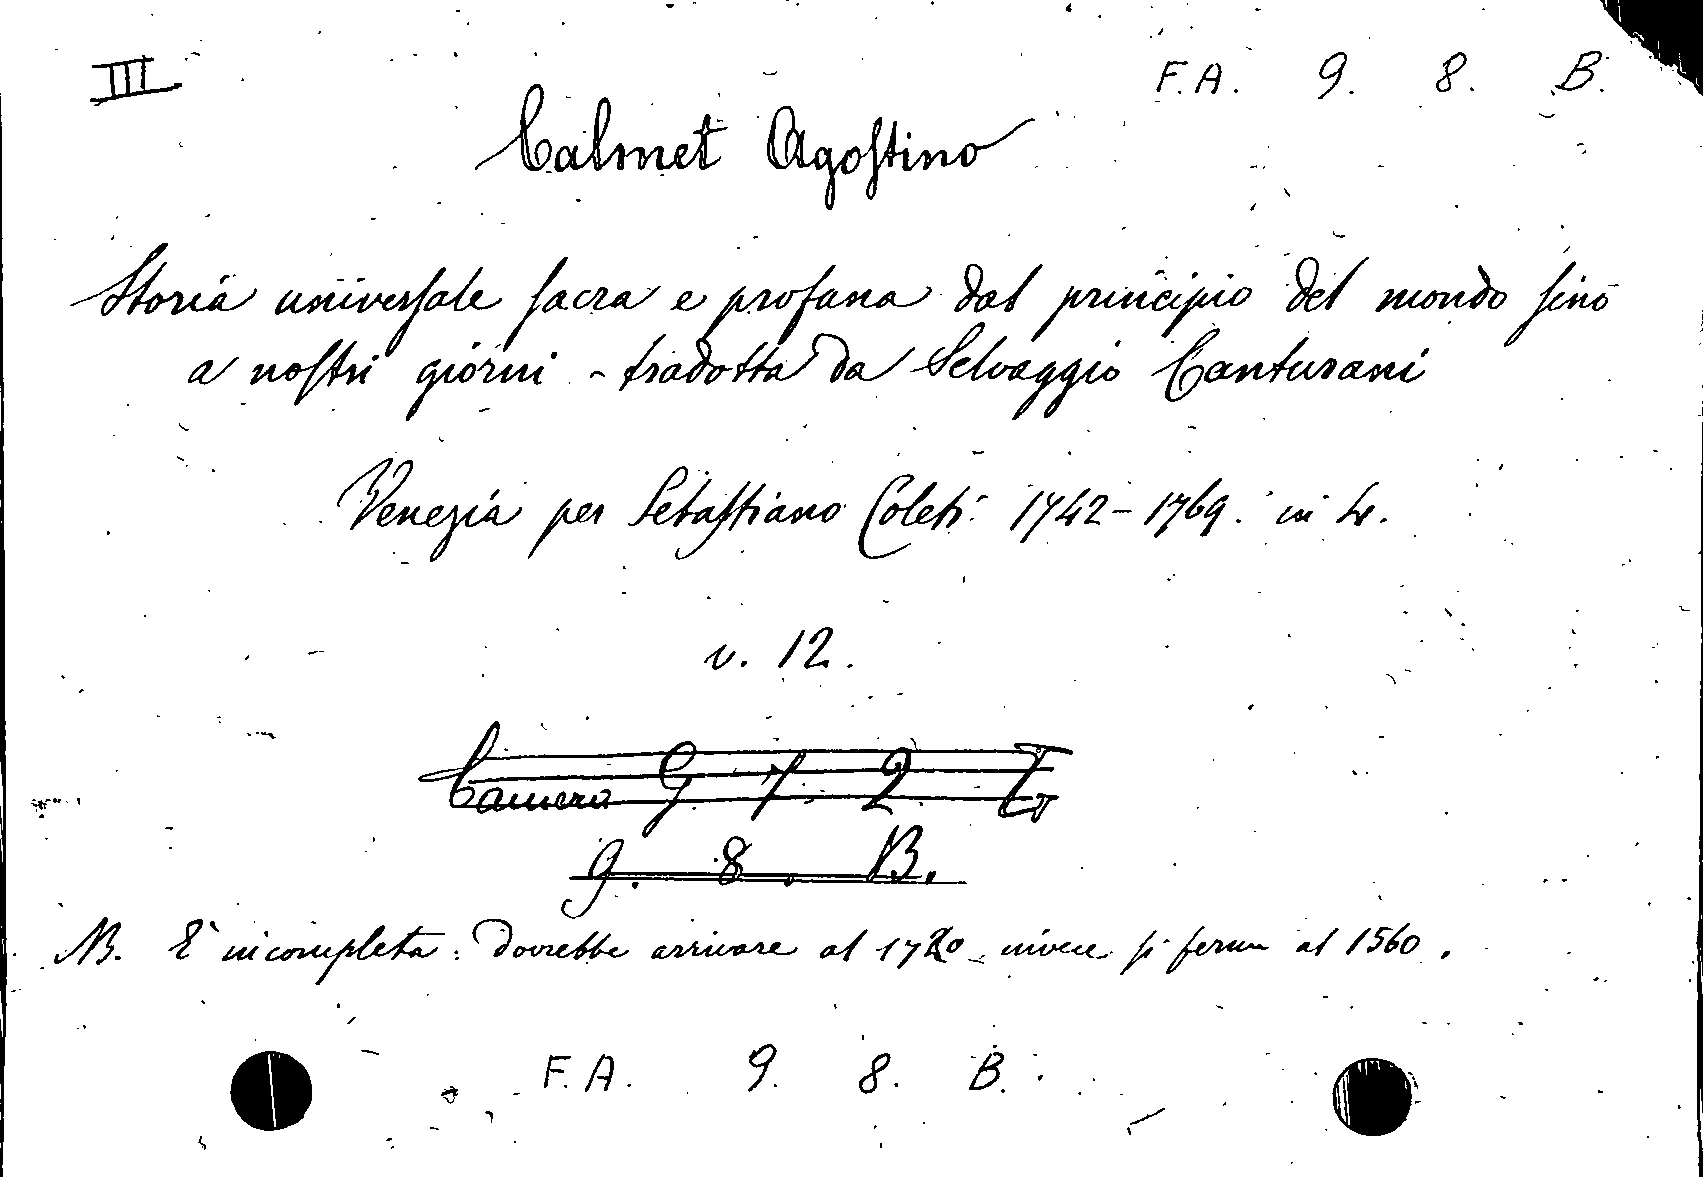 III
F.A. 9. 8. B.
Calmet Agostino
Storia universale sacra e profana dal principio del mondo sino
a nostri giorni - tradotta da Selvaggio Canturani
Venezia per Sebastiano Coleti 1742-1769. in 4.
v. 12.
Camera G 7. 2.
9. 8. B.
NB. E' incompleta: dovrebbe arrivare al 1720 invece si ferma al 1560.
F.A. 9. 8. B.